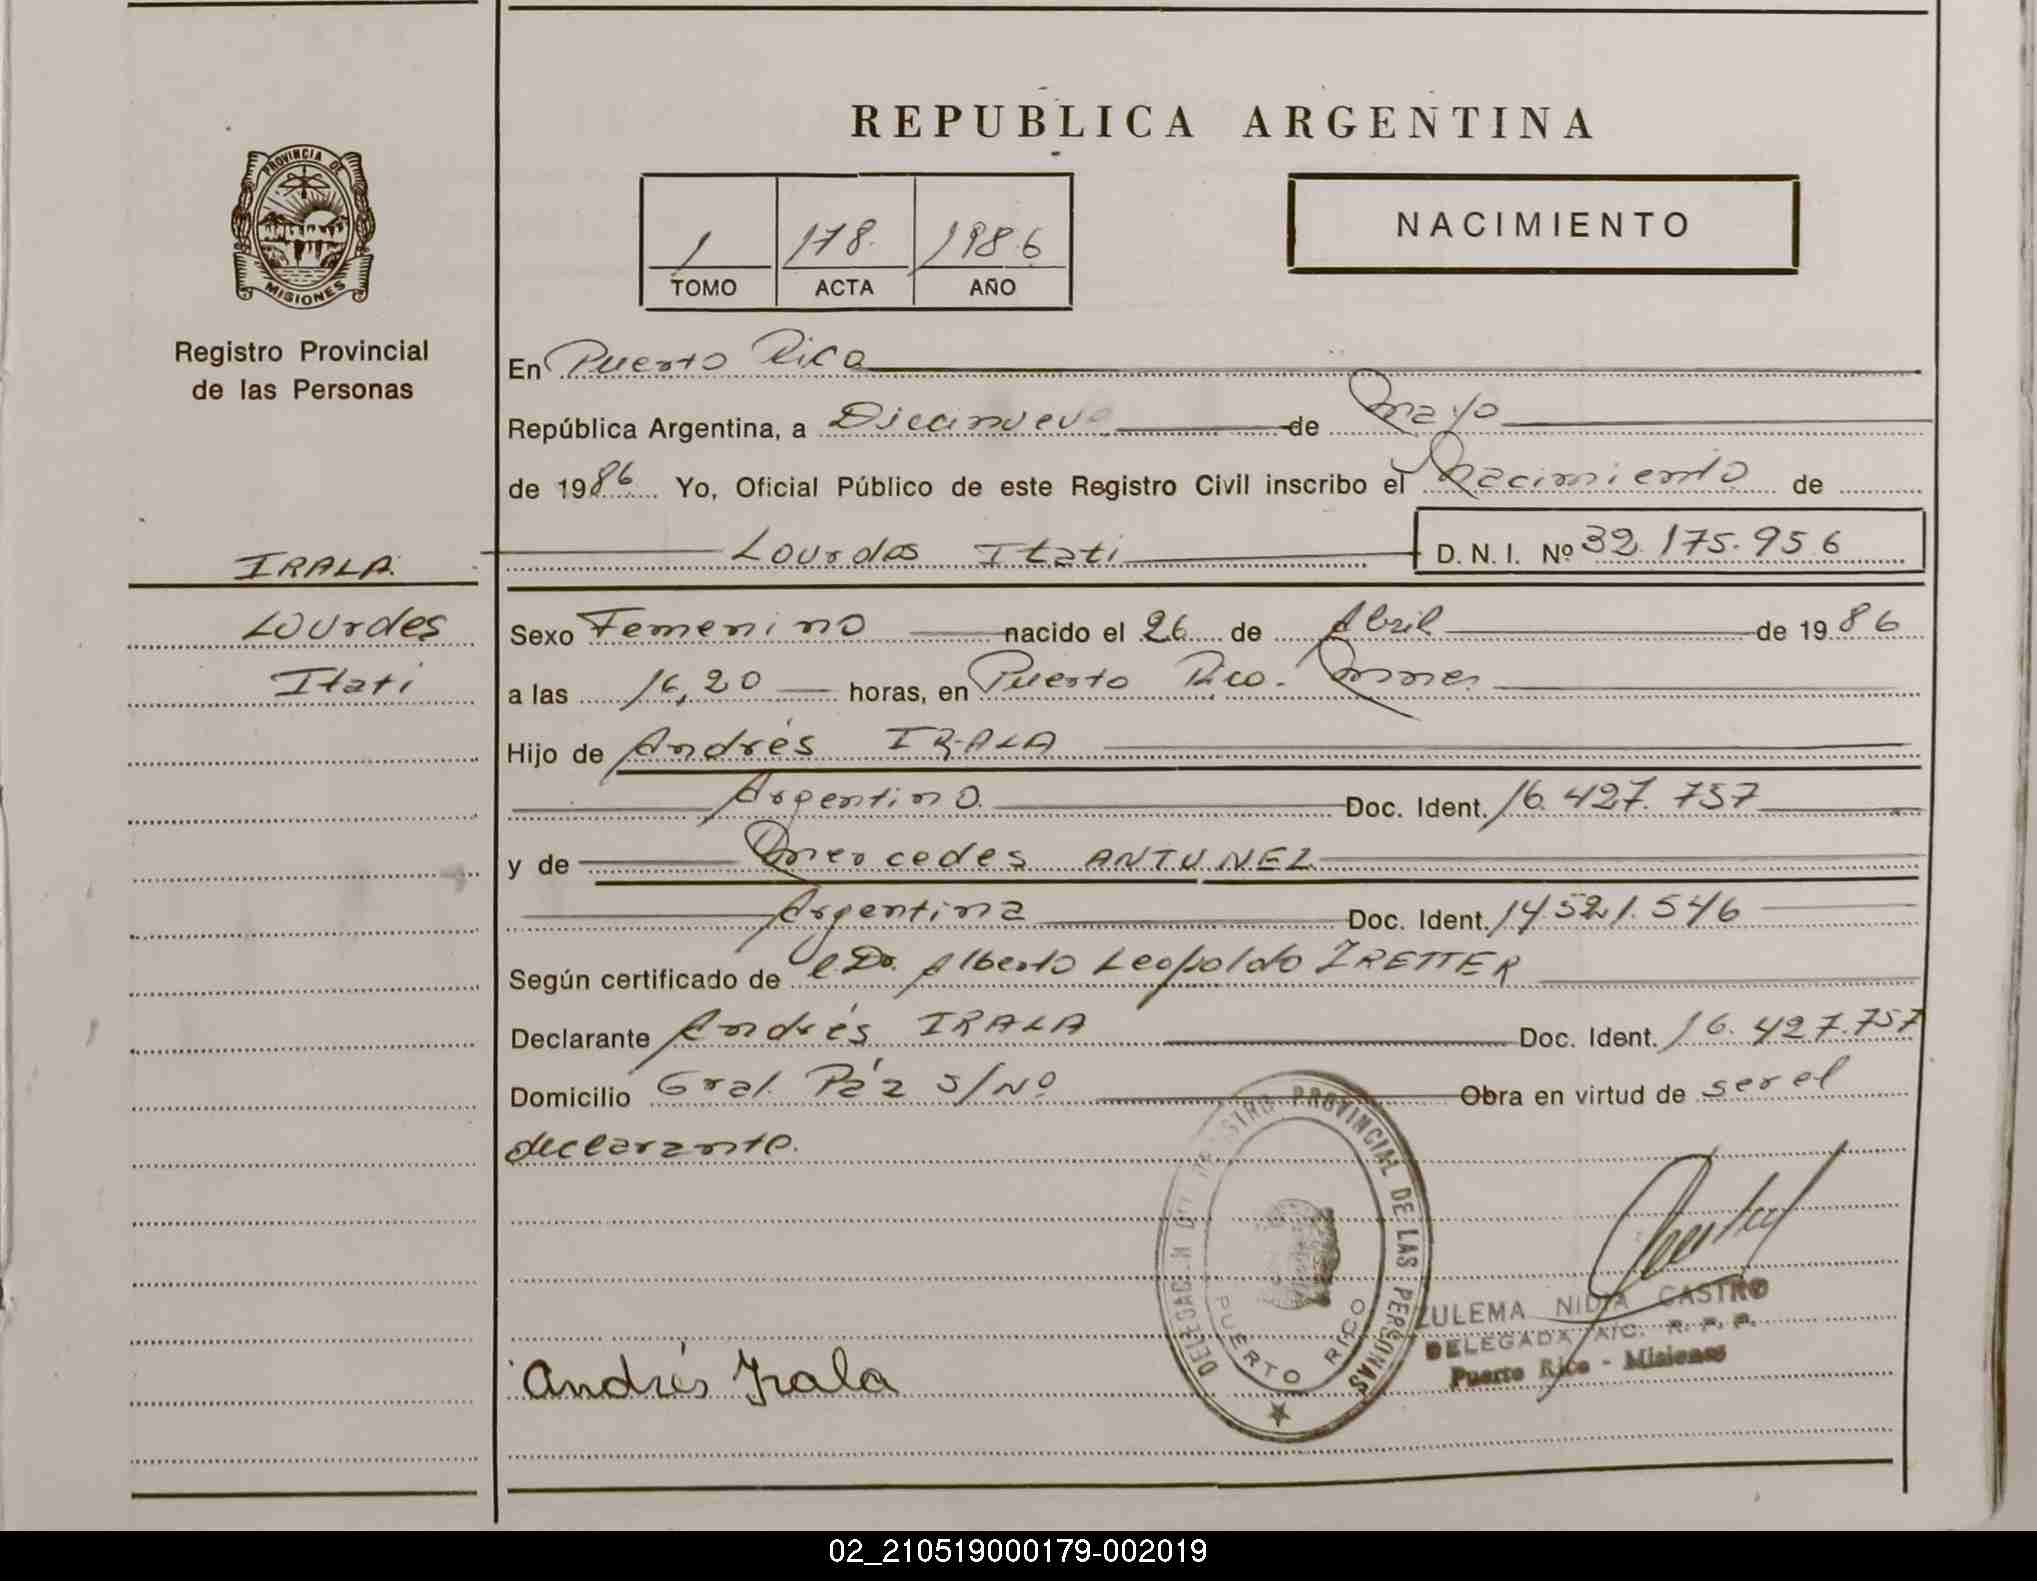 REPUBLICA ARGENTINA
PROVINCIA DE
MISIONES
Registro Provincial
de las Personas
1 178. 1986
TOMO ACTA AÑO
NACIMIENTO
En Puerto Rico
República Argentina, a Diecinueve de Mayo
de 1986 Yo, Oficial Público de este Registro Civil inscribo el Nacimiento de
IRALA.
Lourdes Itati D. N. I. Nº 32.175.956
Lourdes
Itati
Sexo Femenino nacido el 26 de Abril de 1986
a las 16,20 horas, en Puerto Rico. Mnes.
Hijo de Andrés IRALA
Argentino. Doc. Ident. 16.427.757
y de Mercedes ANTUNEZ
Argentina Doc. Ident. 14.521.546
Según certificado de el Dr. Alberto Leopoldo ZRETTER
Declarante Andrés IRALA Doc. Ident. 16.427.757
Domicilio Gral. Páz S/Nº Obra en virtud de ser el
declarante.
DELEGACION DEL REGISTRO PROVINCIAL DE LAS PERSONAS
PUERTO RICO
ZULEMA NIDIA CASTRO
DELEGADA A/C. R. P. P.
Puerto Rico - Misiones
Andrés Irala
02_210519000179-002019